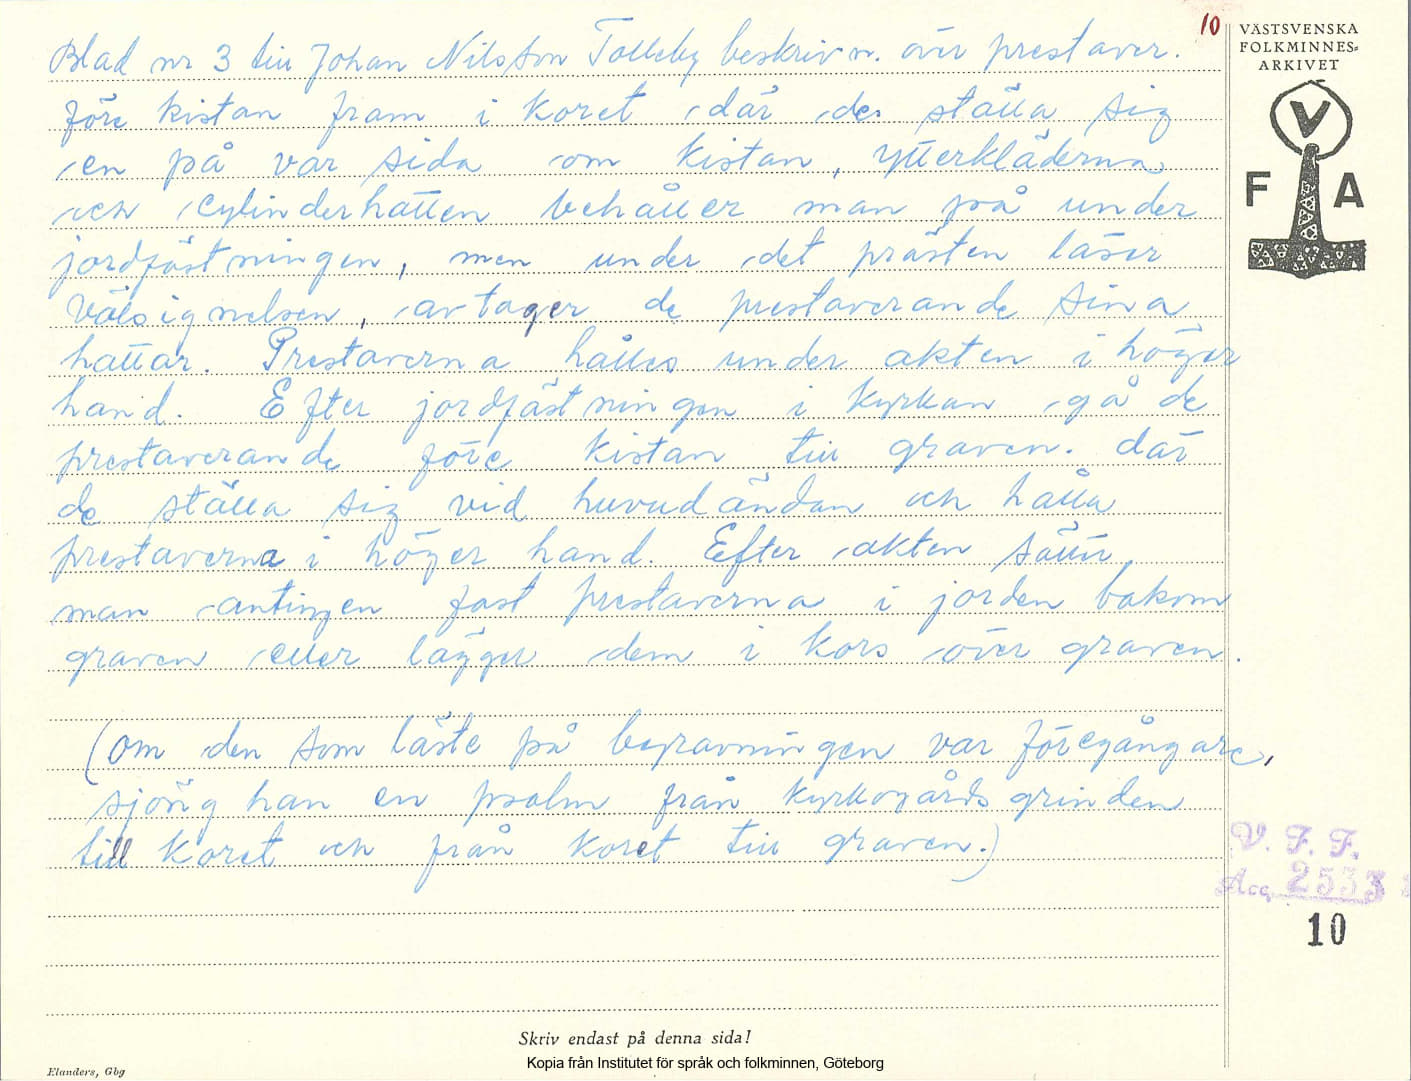 10
VÄSTSVENSKA
FOLKMINNES-
ARKIVET
V
F A
Blad nr 3 till Johan Nilsson Tolleby beskrivn. över prestaver.
före kistan fram i koret där de ställa sig
en på var sida om kistan, ytterkläderna
och cylinderhatten behåller man på under
jordfästningen, men under det prästen läser
välsignelsen, avtager de prestaverande sina
hattar. Prestaverna hålles under akten i höger
hand. Efter jordfästningen i kyrkan gå de
prestaverande före kistan till graven. där
de ställa sig vid huvudändan och hålla
prestaverna i höger hand. Efter akten sätter
man antingen fast prestaverna i jorden bakom
graven eller lägger dem i kors över graven.
(om den som läste på begravningen var föregångare,
sjöng han en psalm från kyrkogårdsgrinden
till koret och från koret till graven.)
V. F. F.
Acc. 2533
10
Skriv endast på denna sida!
Kopia från Institutet för språk och folkminnen, Göteborg
Elanders, Gbg